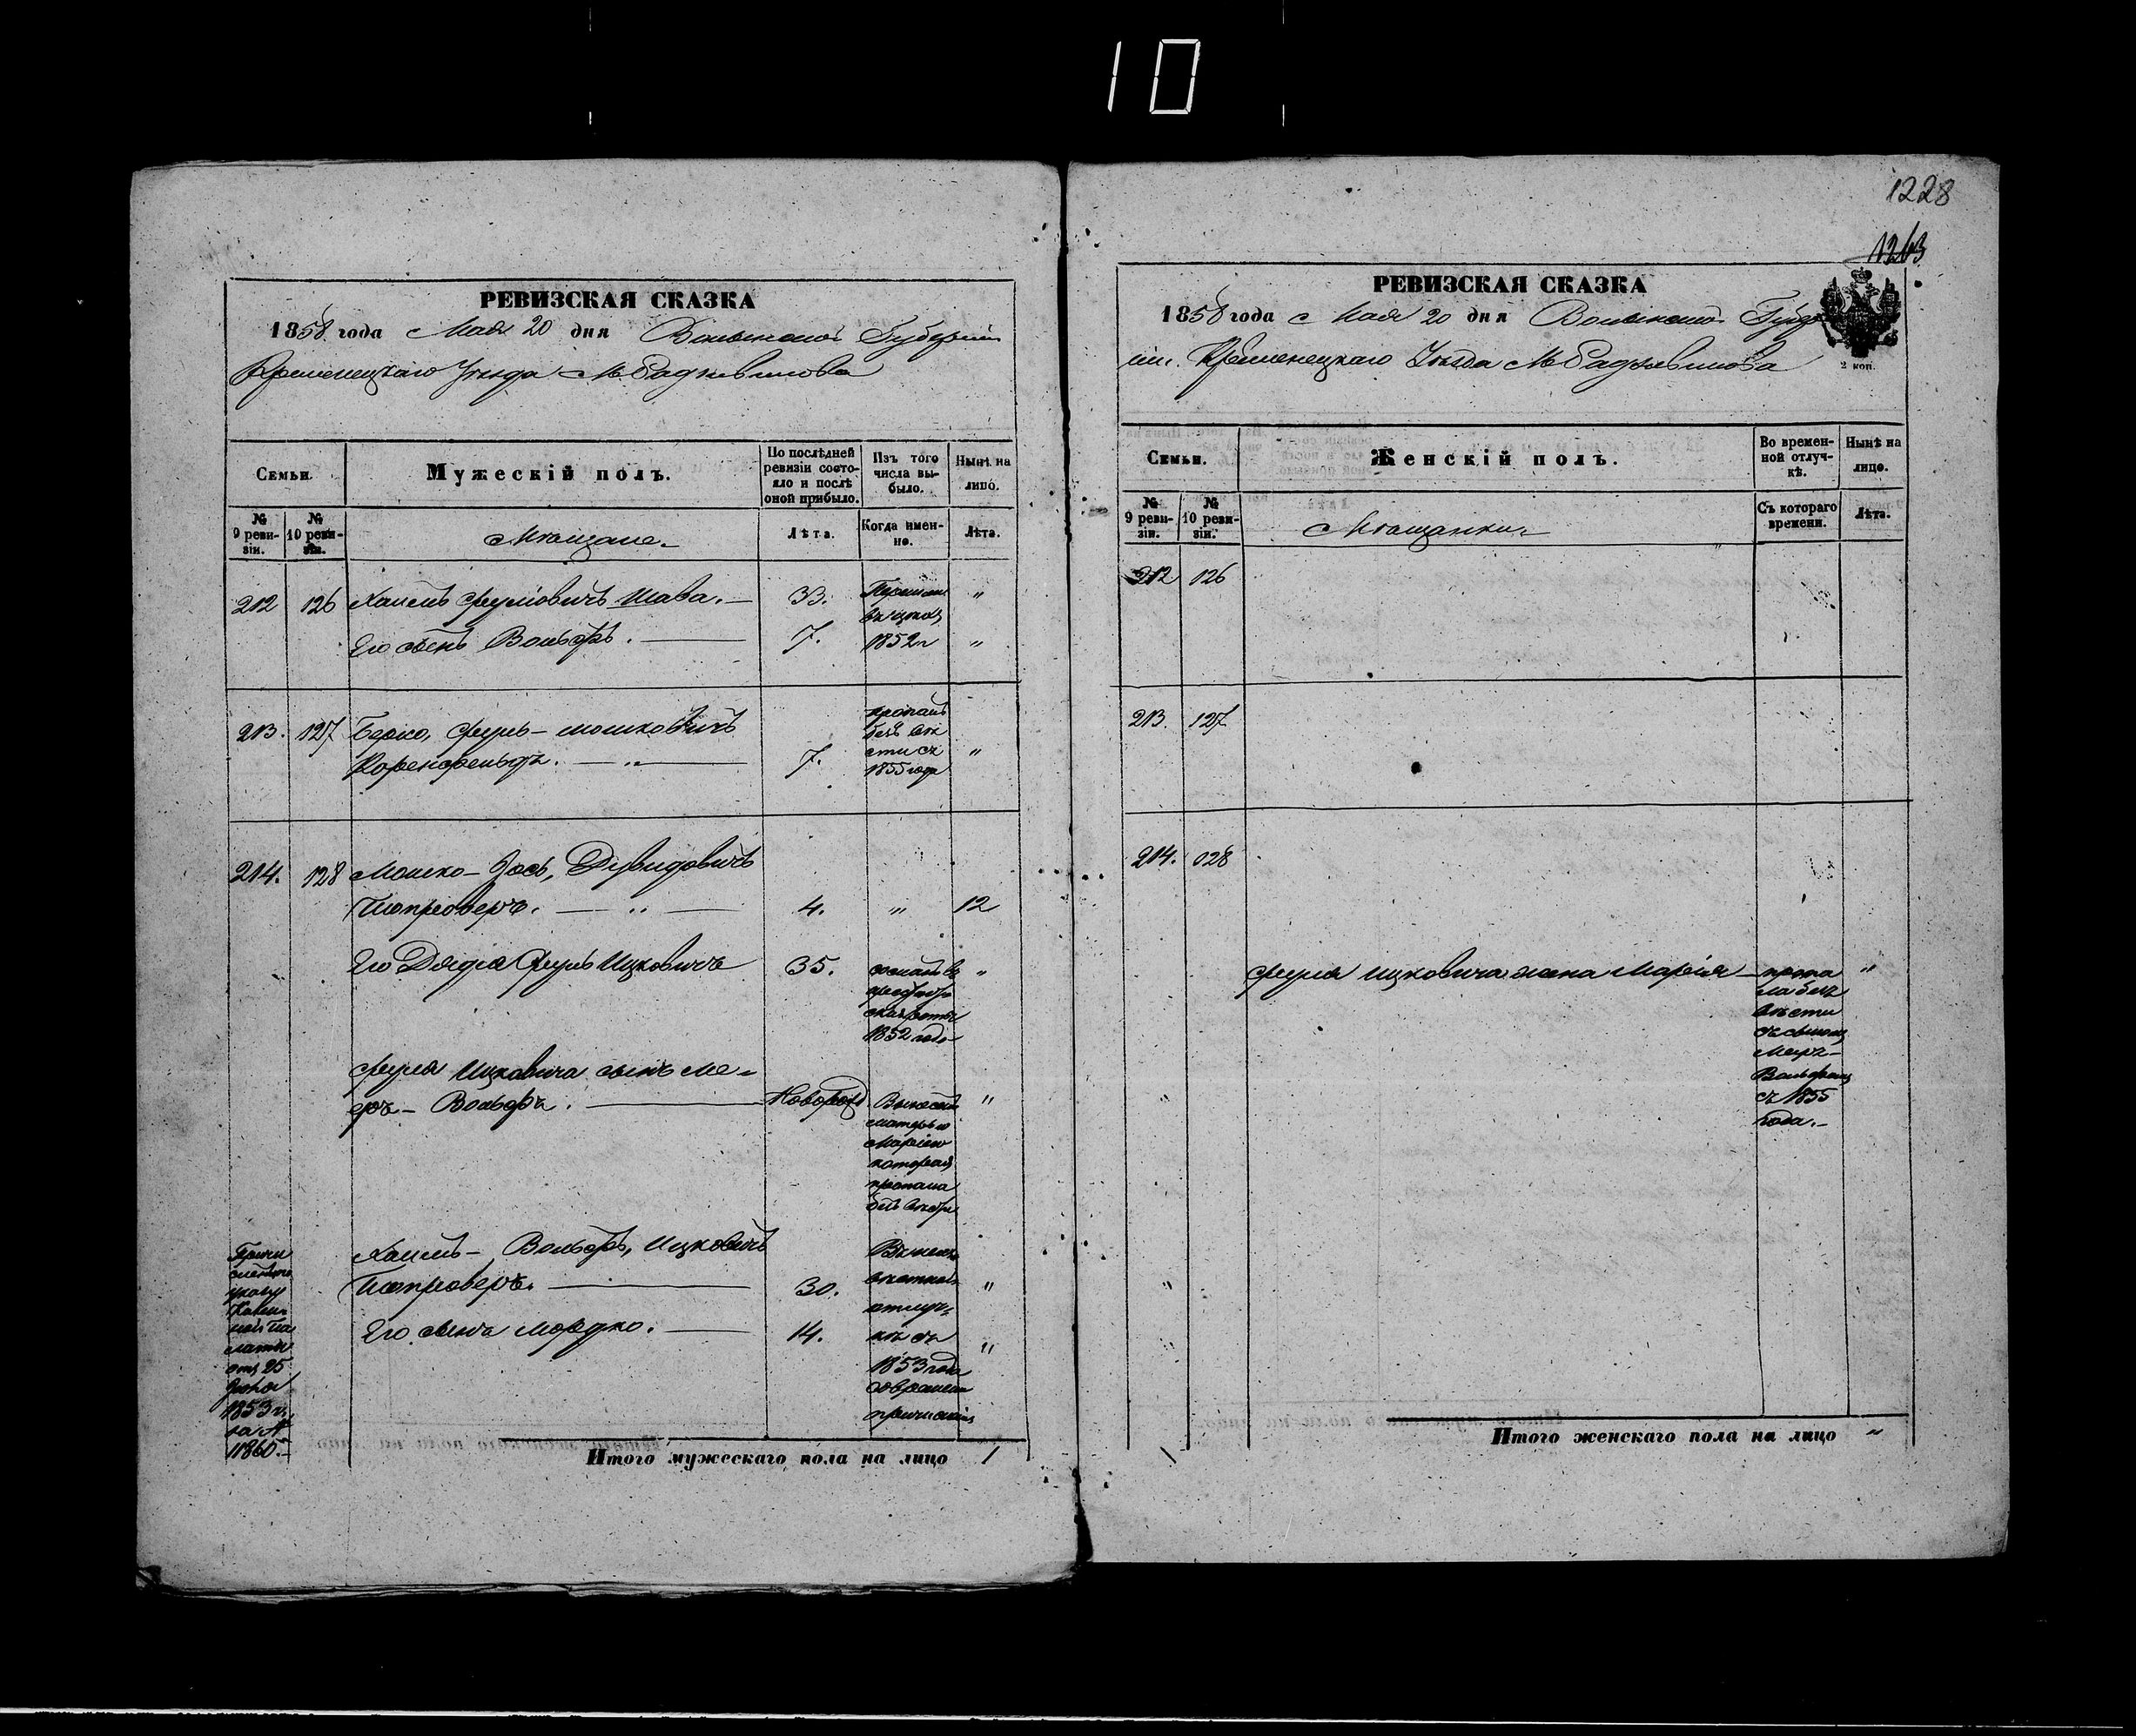 10
1228
1263
РЕВИЗСКАЯ СКАЗКА
1858 года Мая 20 дня Волынской Губерніи
Кременецкаго Уѣзда М. Радзивилова
Семьи.
Мужескій полъ.
По послѣдней ревизіи состояло и послѣ оной прибыло.
Изъ того числа выбыло.
Нынѣ на лицо.
№ 9 ревизіи.
№ 10 ревизіи.
Мѣщане.
Лѣта.
Когда именно.
Лѣта.
212 126 Хаимъ Сруліовичъ Шава. — 33. "
Его сынъ Вольфъ. — 7. 1852 г "
213. 127 Берко, Сруль-Мошковичъ
Коренфельдъ. — " — 7. "
пропалъ
безъ вѣ
сти съ
1855 года
214. 128 Мошко-Йось, Дувидовичъ
— " — 4. " 12
Его Дядя Сруль Ицковичъ 35. "
сосланъ въ
1852 года
Сруля Ицковича сынъ Ме-
еръ-Вольфъ. — Новорожд. "
матерью
Маріею
которая
пропала
безъ вѣсти
Хаимъ-Вольфъ, Ицковичъ
— 30. "
Его сынъ Мордко. — 14. "
отлуч-
кѣ съ
1853 года
Причи
сленъ по
указу
Казен
ной Па
латы
отъ 25
1853 г.
за №
11860.
Итого мужескаго пола на лицо 1
РЕВИЗСКАЯ СКАЗКА
1858 года Мая 20 дня Волынской Губер
ніи. Кременецкаго Уѣзда М. Радзивилова
2 коп.
Семьи.
Женскій полъ.
Во временной отлучкѣ.
Нынѣ на лицо.
№ 9 ревизіи.
№ 10 ревизіи.
Мѣщанки.
Съ котораго времени.
Лѣта.
212 126
213. 127
214. 128
Сруля Ицковича жена Марія — "
пропа
ла безъ
вѣсти
съ сыномъ
Меръ-
Вольфомъ
съ 1855
года. —
Итого женскаго пола на лицо "